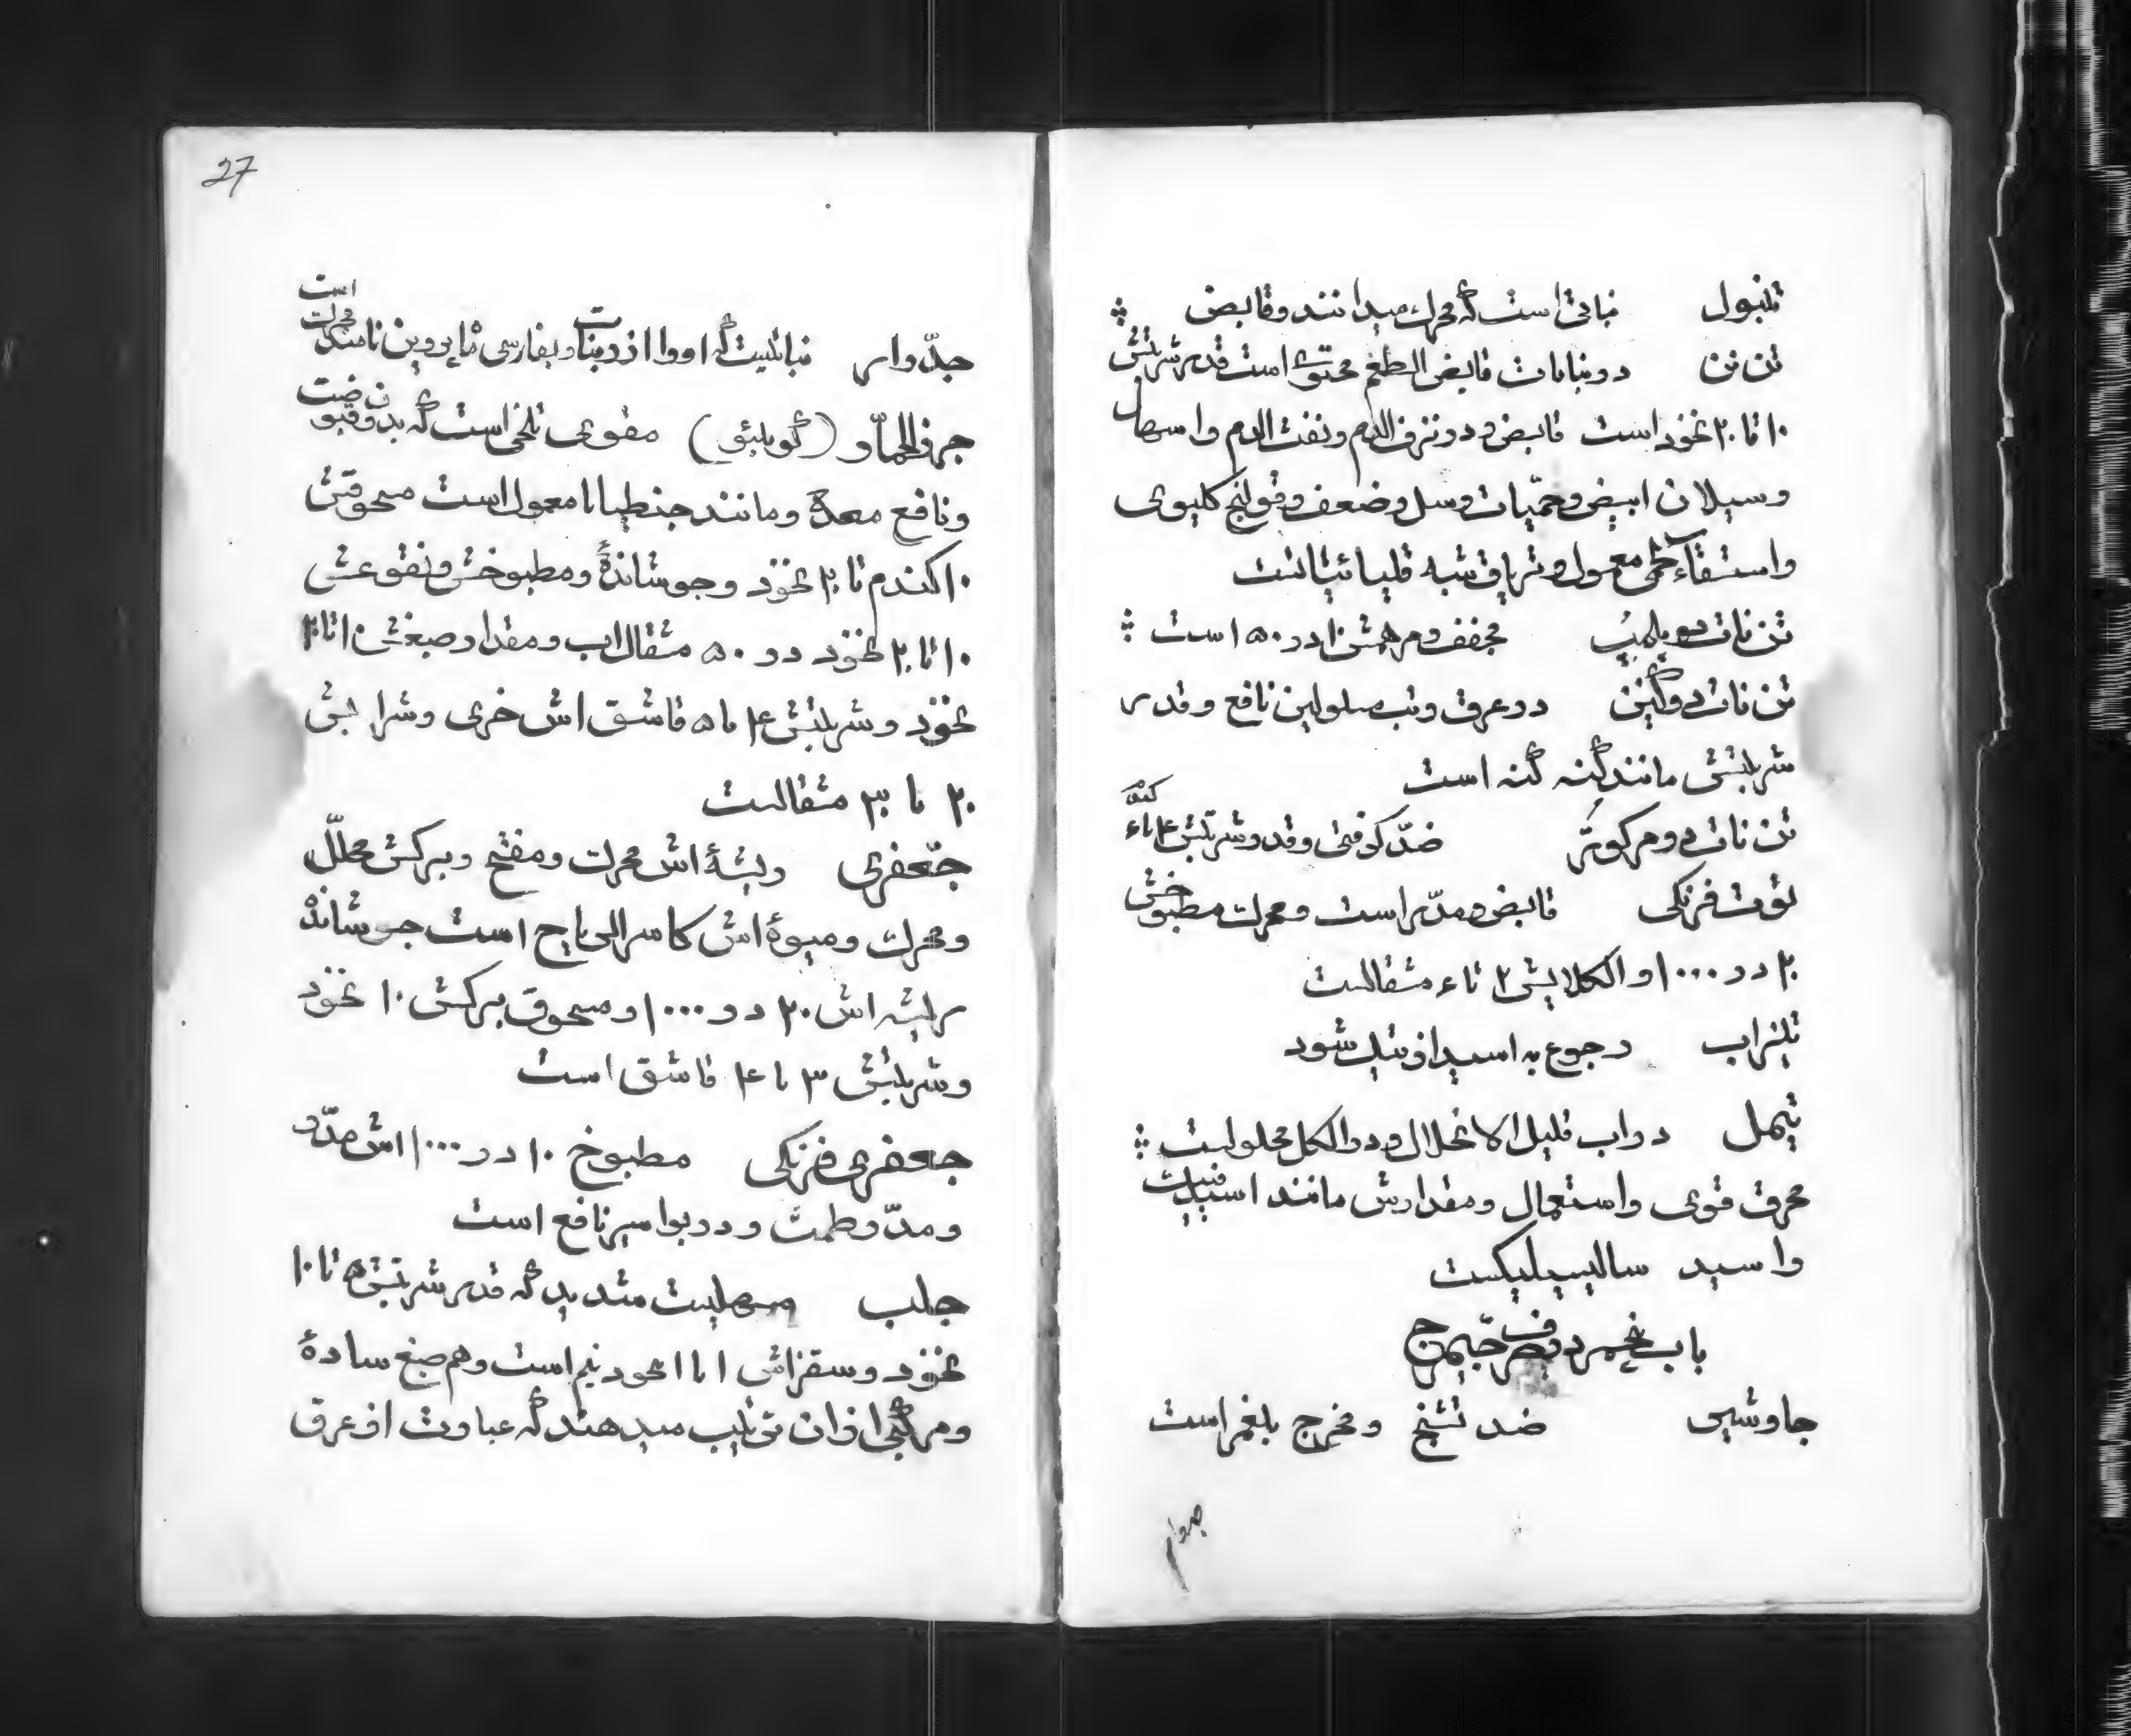 تنبول نباتی است که محرک میدانند و قابض
تن تن در نباتات قابض الطعم محتوی است قدر شربتش
۱۰ تا ۲۰ نخود است قابض و در نزف الدم و نفث الدم و اسهال
و سیلان ابیض و حمیات و سل و ضعف و قولنج کلیوی
و استسقاء لحمی معمول و تریاق شبه قلیائیاتست
تن نات دو پلمب مجفف و مرهمش ۱۰ در ۵۰ است
تن نات دو کنین در عرق و تب مسلولین نافع و قدر
شربتش مانند گنه گنه است
تن نات دو مرکور ضد کوفتی و قدر شربتش ۴ تا ۶
توت فرنگی قابض و مدر است و محرک مطبوخش
۲۰ در ۱۰۰۰ و الکلایش ۲ تا ۶ مثقالست
تیزاب رجوع به اسید ازتیک شود
تیمل در آب قلیل الانحلال و در الکل محلولست
محرق قوی و استعمال و مقدارش مانند اسید فنیک
و اسید سالیسیلیکست
باب پنجم در حرف جیم ج
جاوشیر ضد تشنج و مخرج بلغم است
جدوار
27
است
جدوار نباتیست که او را از و بفارسی ماه پروین نامند محرک
(کولمبو) مقوی تلخی است که بدون
و نافع معده و مانند جنطیانا معمول است مسحوقش
۱۰ گندم تا ۲ نخود و جوشانده و مطبوخش و نقوعش
۱۰ تا ۲۰ نخود در ۵۰ مثقال آب و مقدار صبغش ۱۰ تا ۲۰
نخود و شربتش ۴ تا ۵ قاشق آش خوری و شرابش
۲۰ تا ۳۰ مثقالست
جعفری ریشه اش محرک و مفتح و برگش محلل
و محرک و میوه اش کاسر الریاح است جوشانده
ریشه اش ۲۰ در ۱۰۰۰ و مسحوق برگش ۱۰ نخود
و شربتش ۳ تا ۴ قاشق است
جعفری فرنگی مطبوخ ۱۰ در ۱۰۰۰ اش مدر
و مدر طمث و در بواسیر نافع است
جلب مسهلیست شدید که قدر شربتش ۵ تا ۱۰
نخود و سقزاش ۱ تا نخود نیم است و هم صبغ ساده
و مرکبی از آن ترتیب میدهند که عبارت از عرق